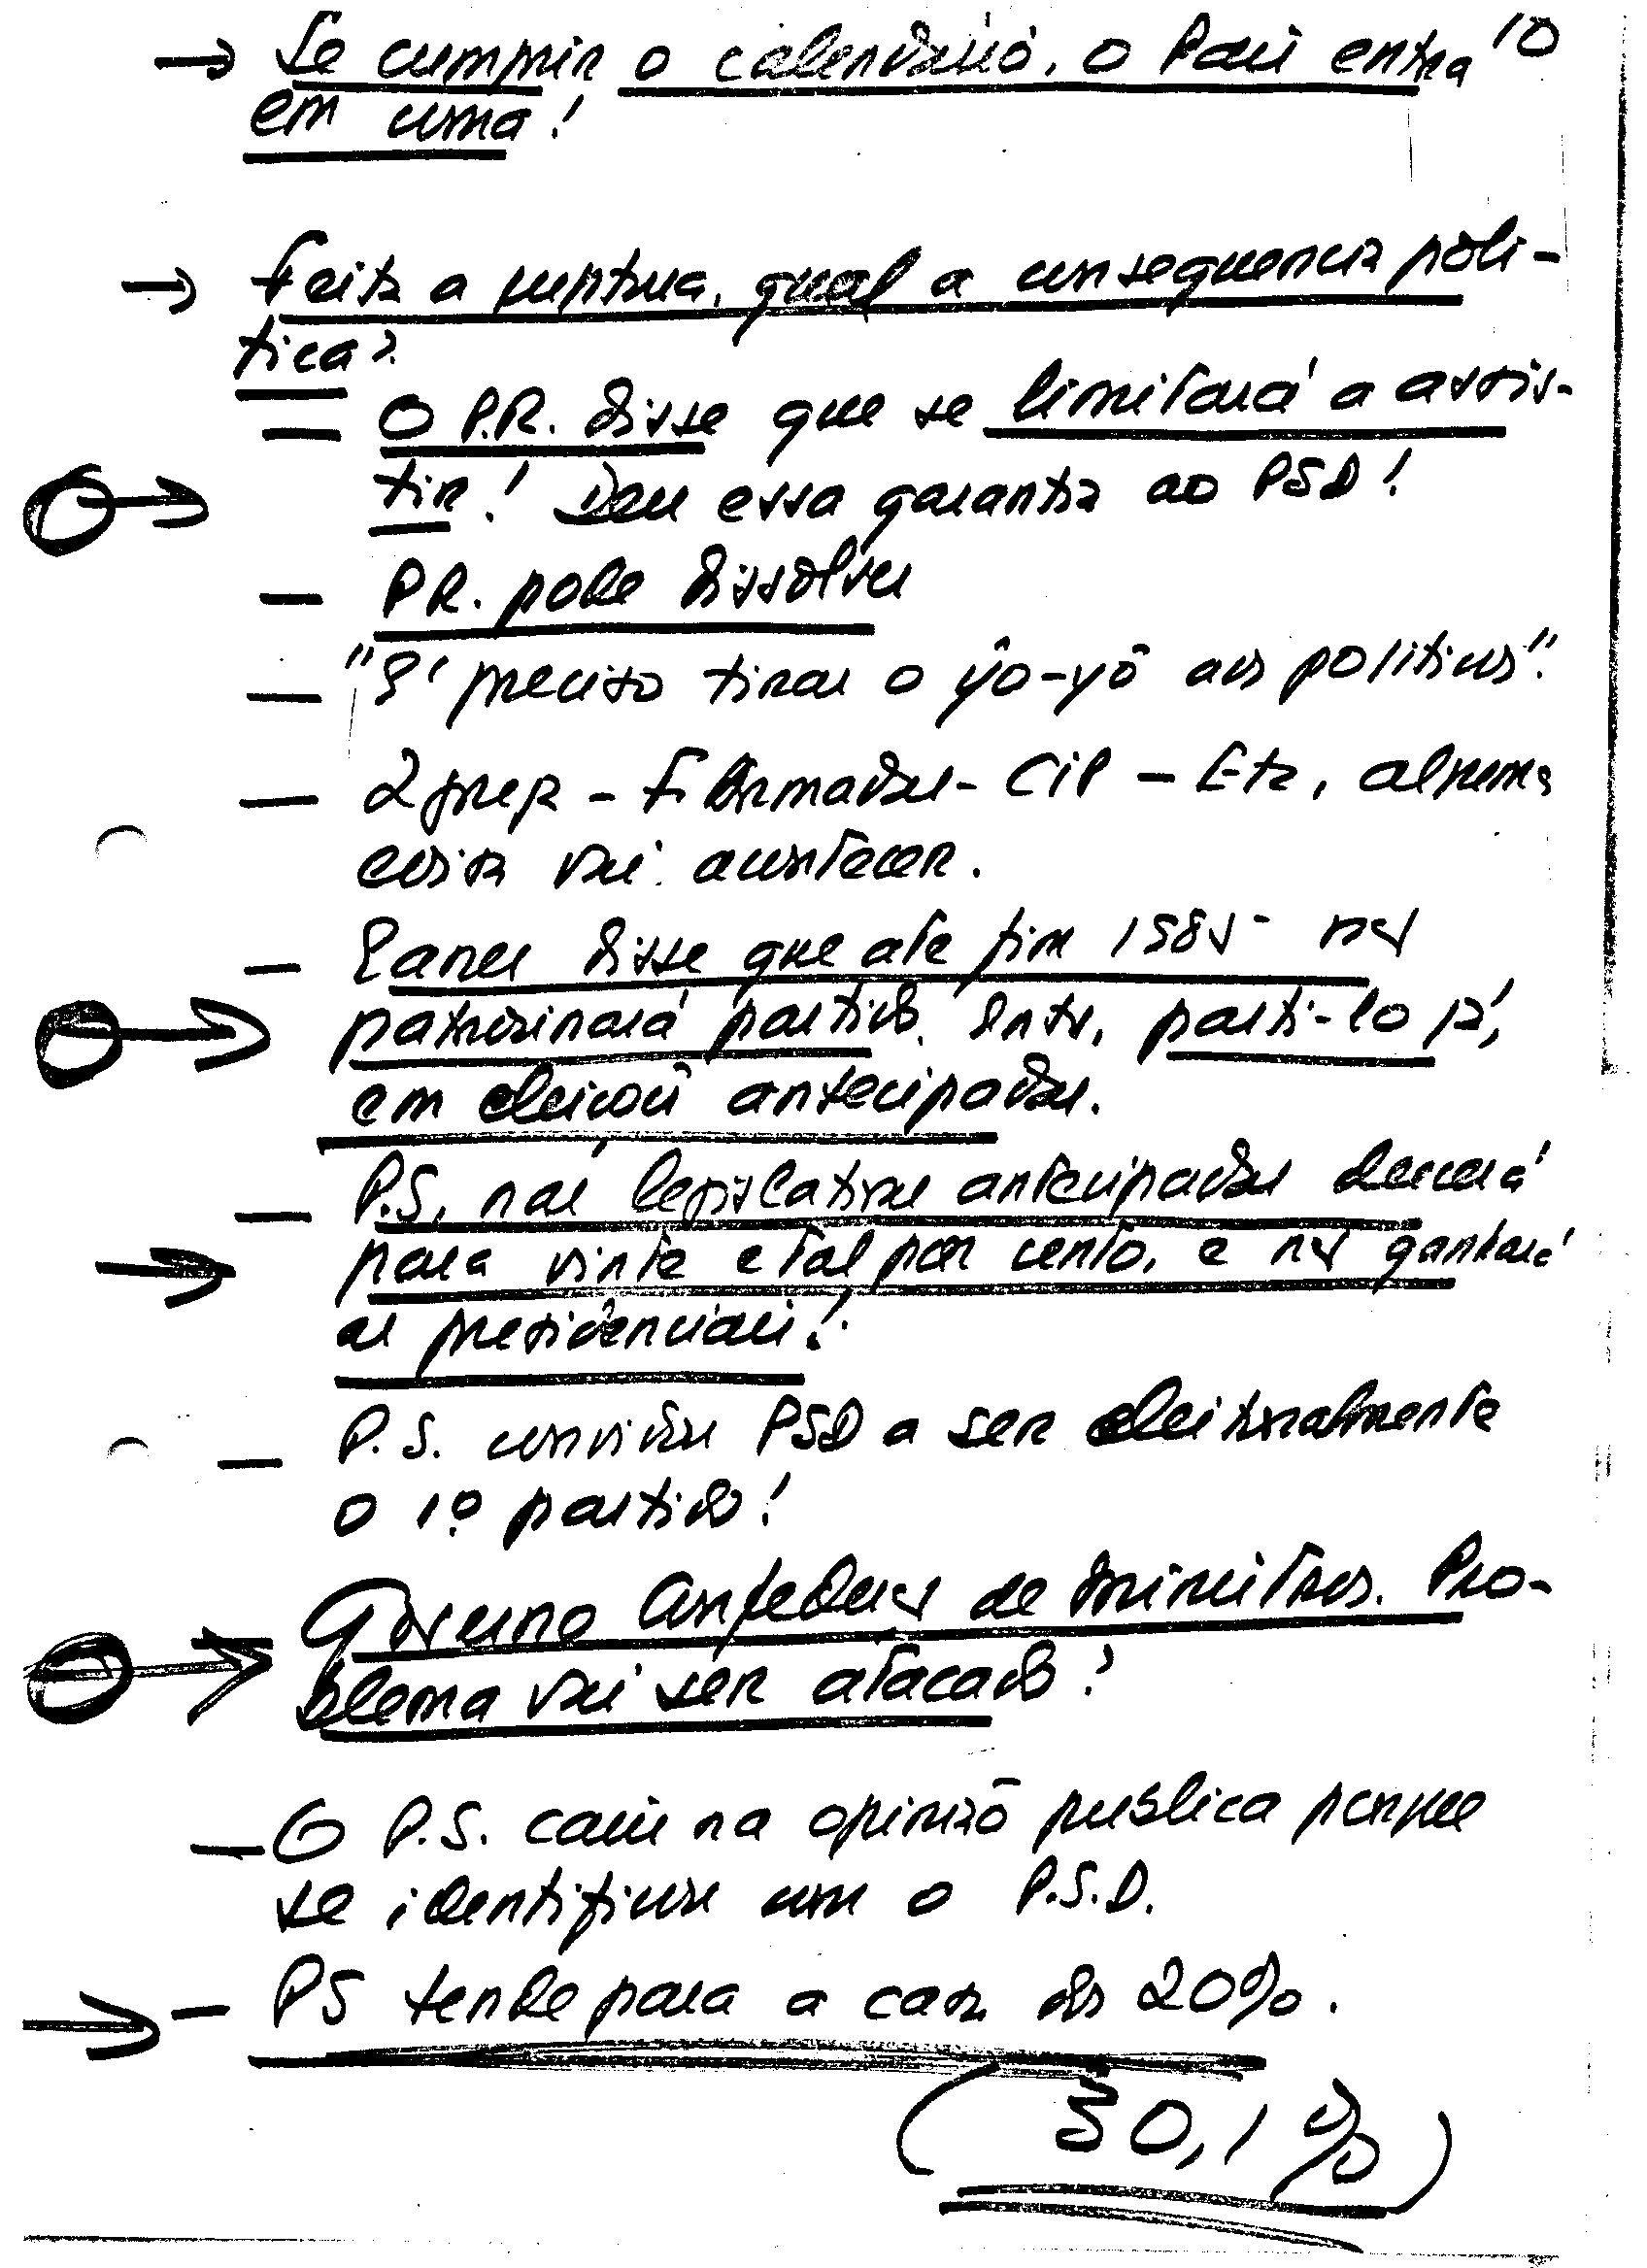 → Se cumprir o calendário, o País entra 10
em coma!
→ Feita a ruptura, qual a consequencia poli-
tica?
— O P.R. disse que se limitará a assis-
tir! Deu essa garantia ao PSD!
— P.R. pode dissolver
— "É preciso tirar o yô-yô aos politicos".
— Igreja - F. Armadas - CIP - Etc, alguma
coisa vai acontecer.
— Eanes disse que ate fim 1985 - não
patrocinará partido. Entre, parti-lo já,
em eleições antecipadas.
— P.S, nas legislativas antecipadas descerá
para vinte e tal por cento, e não ganhará
as presidenciais!
— P.S. convidou PSD a ser eleitoralmente
o 1º partido!
→ Governo Confederação de Ministros. Pro-
blema vai ser atacado?
— O P.S. caiu na opinião publica porque
se identificou com o P.S.D.
→ — PS tende para a casa dos 20%.
(30,1%)